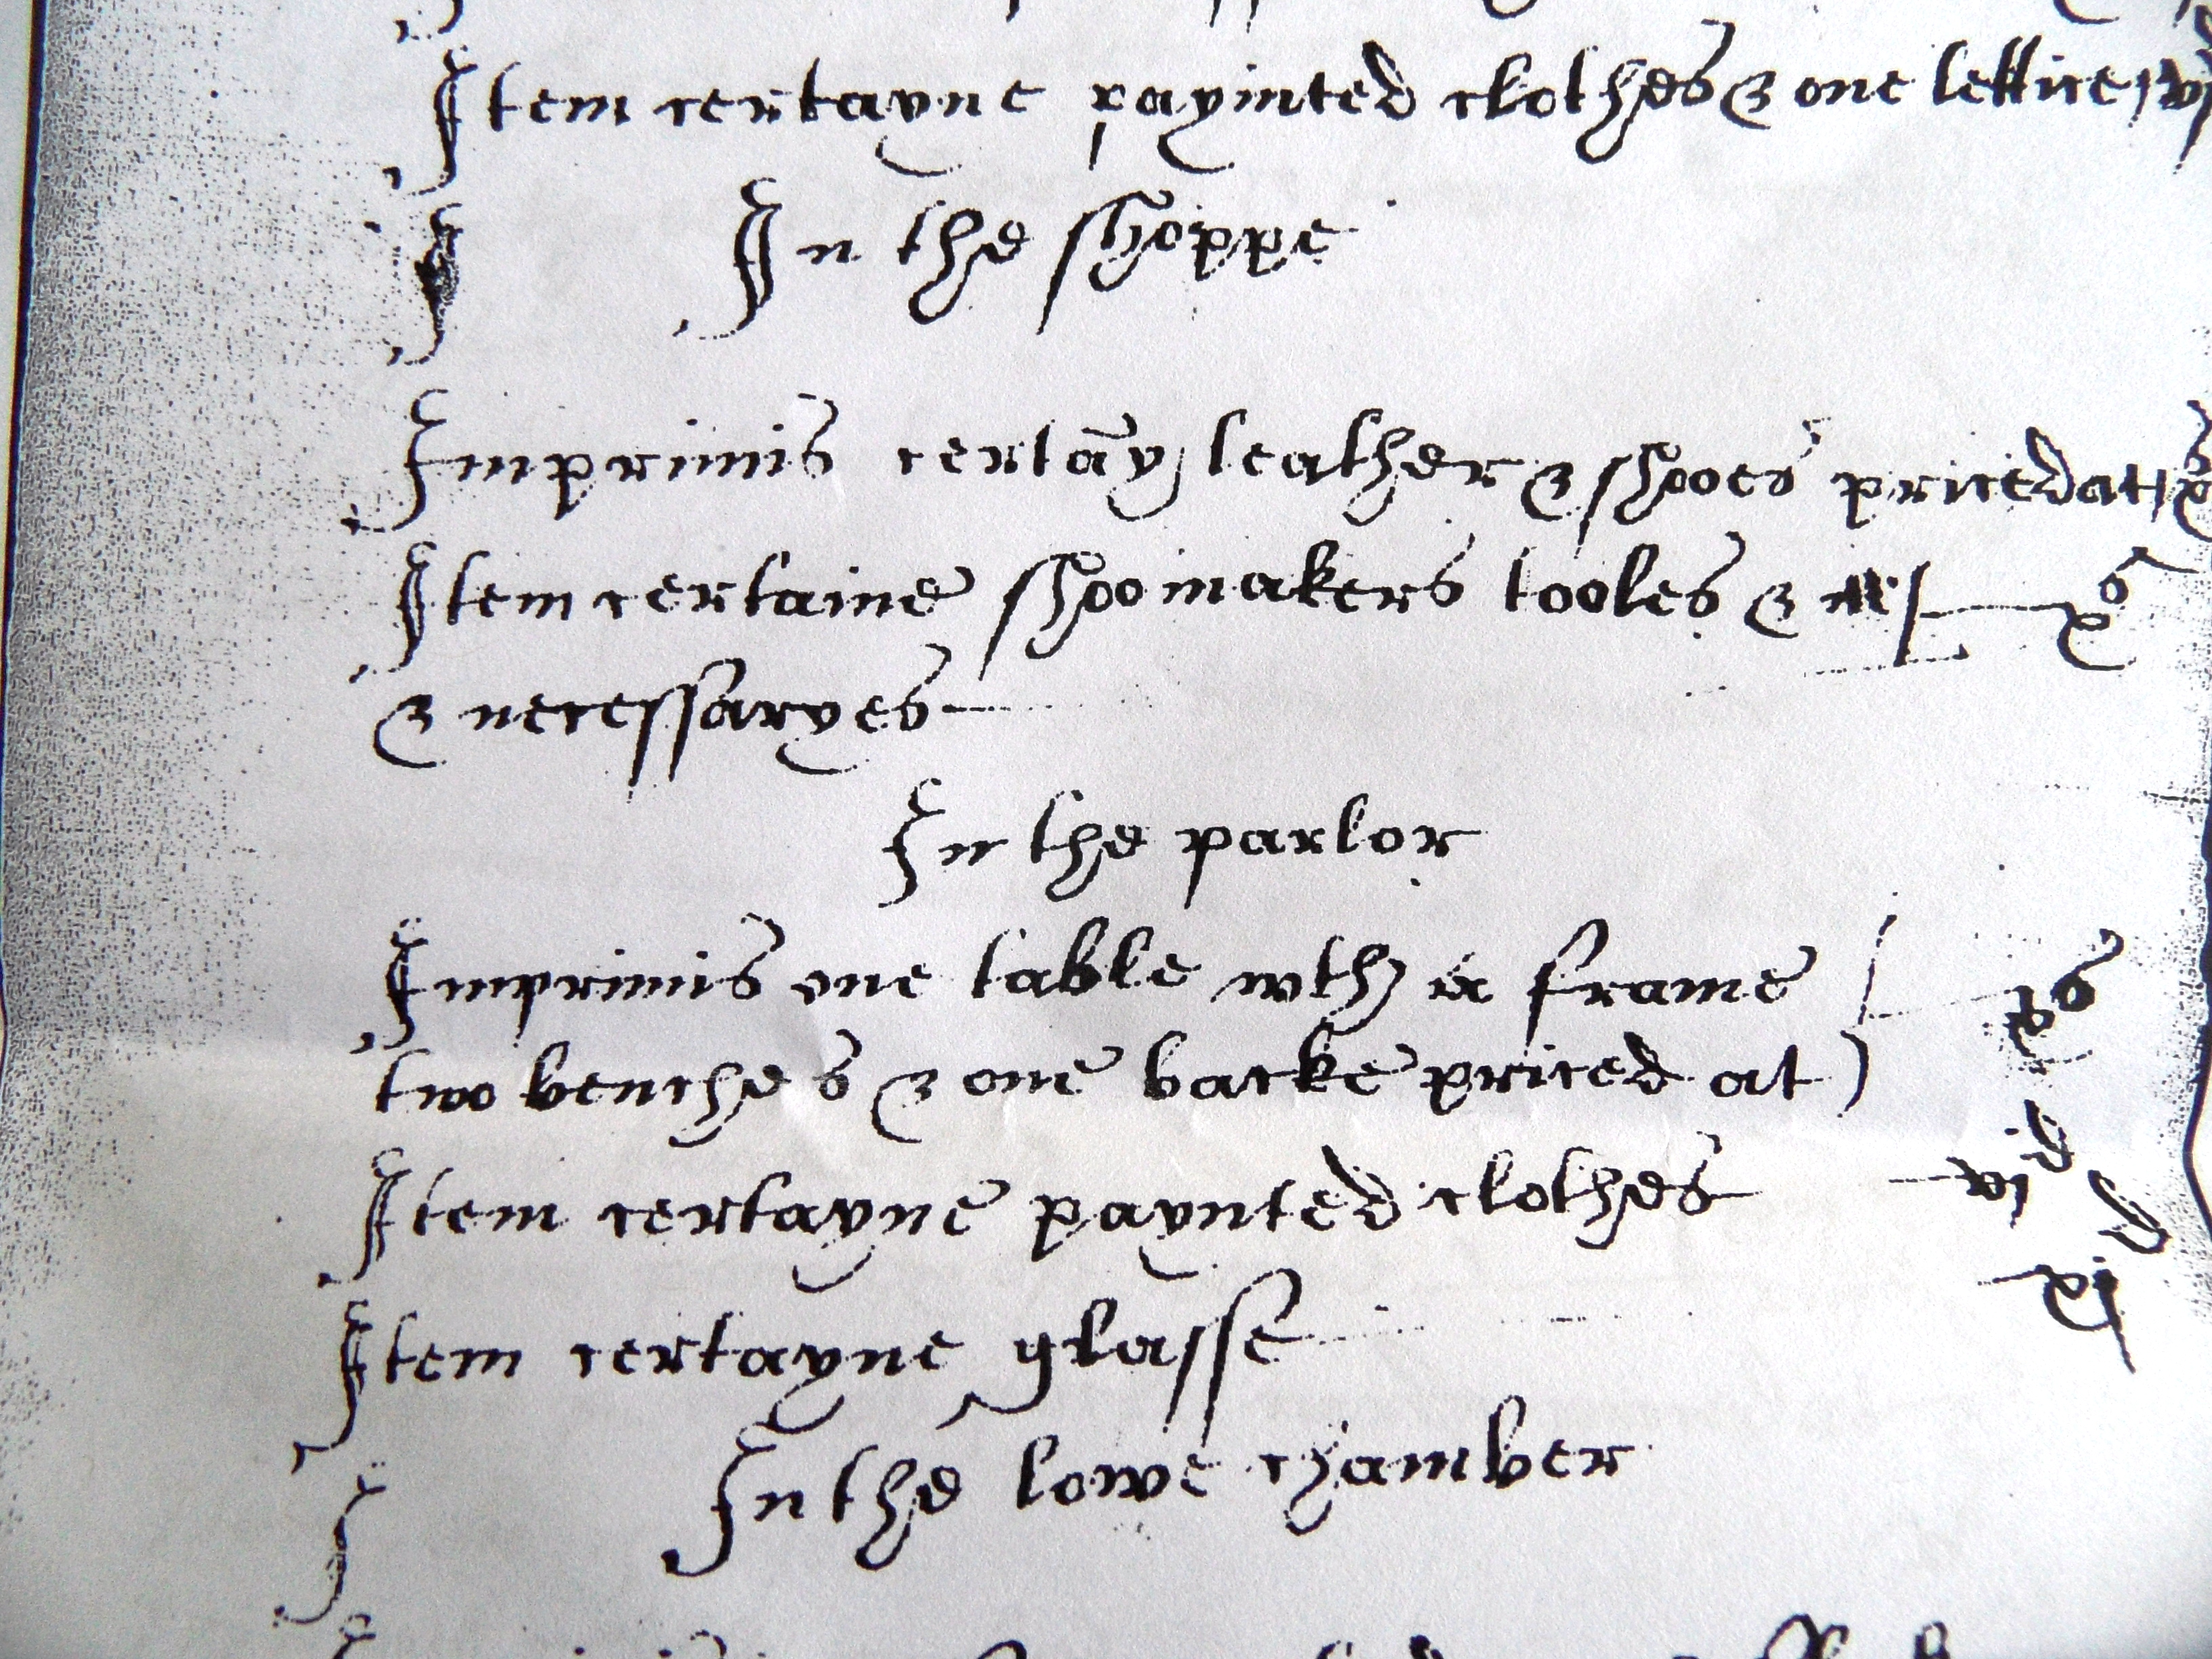 Item certayne payinted clothes & one lettice
In the shoppe
Imprimis certāy leather & shooes priced at
Item certaine shoomakers tooles & xs
& necessaryes
In the parlor
Imprimis one table wth a frame xs
two benches & one backe priced at
Item certayne paynted clothes vjd
Item certayne glasse xijd
In the lowe chamber